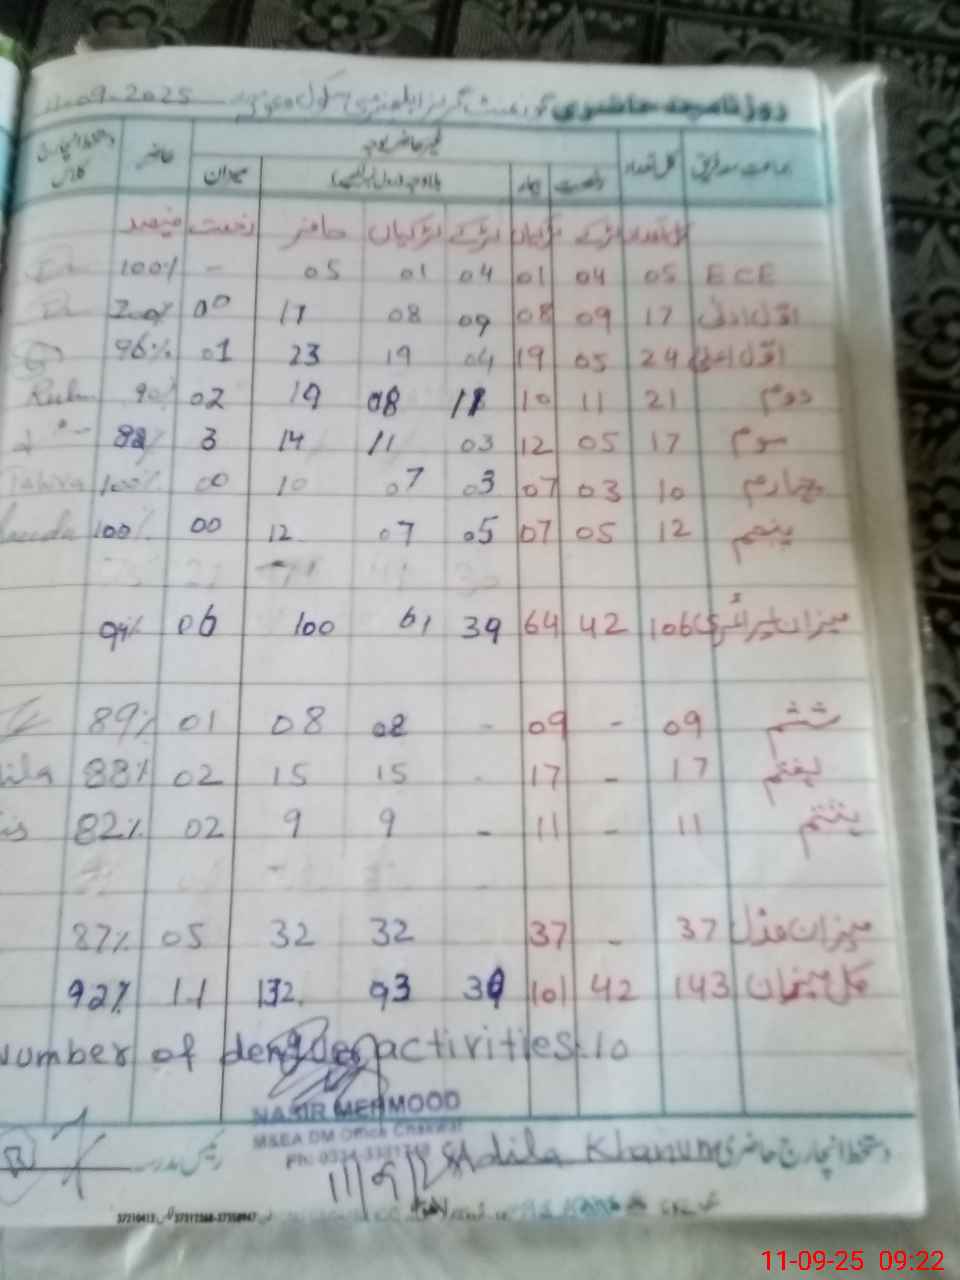 روزنامچہ حاضری گورنمنٹ گرلز ایلیمنٹری سکول 11-09-2025
جماعت کل تعداد رخصت بیمار غیر حاضر میزان حاضر
کل تعداد لڑکے لڑکیاں لڑکے لڑکیاں حاضر رخصت فیصد
ECE 05 04 01 04 01 05 - 100%
اول ادنیٰ 17 09 08 09 08 17 00
اول اعلیٰ 24 05 19 04 19 23 01 96%
دوم 21 11 10 11 08 19 02 90%
سوم 17 05 12 03 11 14 3 82%
چہارم 10 03 07 03 07 10 00 100%
پنجم 12 05 07 05 07 12 00 100%
میزان پرائمری 106 42 64 39 61 100 06 94%
ششم 09 - 09 - 08 08 01 89%
ہفتم 17 - 17 - 15 15 02 88%
ہشتم 11 - 11 - 9 9 02 82%
میزان مڈل 37 - 37 32 32 05 87%
کل میزان 143 42 101 39 93 132 11 92%
Number of dengue activities: 10
NASIR MEHMOOD
M&EA DM Office Chakwal
دستخط انچارج حاضری Adila Khanum
11/9/25
11-09-25 09:22